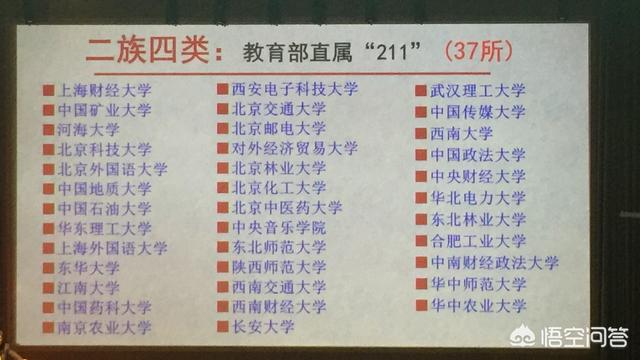 二族四类：教育部直属“211”（37所）
上海财经大学
中国矿业大学
河海大学
北京科技大学
北京外国语大学
中国地质大学
中国石油大学
华东理工大学
上海外国语大学
东华大学
江南大学
中国药科大学
南京农业大学
西安电子科技大学
北京交通大学
北京邮电大学
对外经济贸易大学
北京林业大学
北京化工大学
北京中医药大学
中央音乐学院
东北师范大学
陕西师范大学
西南交通大学
西南财经大学
长安大学
武汉理工大学
中国传媒大学
西南大学
中国政法大学
中央财经大学
华北电力大学
东北林业大学
合肥工业大学
中南财经政法大学
华中师范大学
华中农业大学
悟空问答